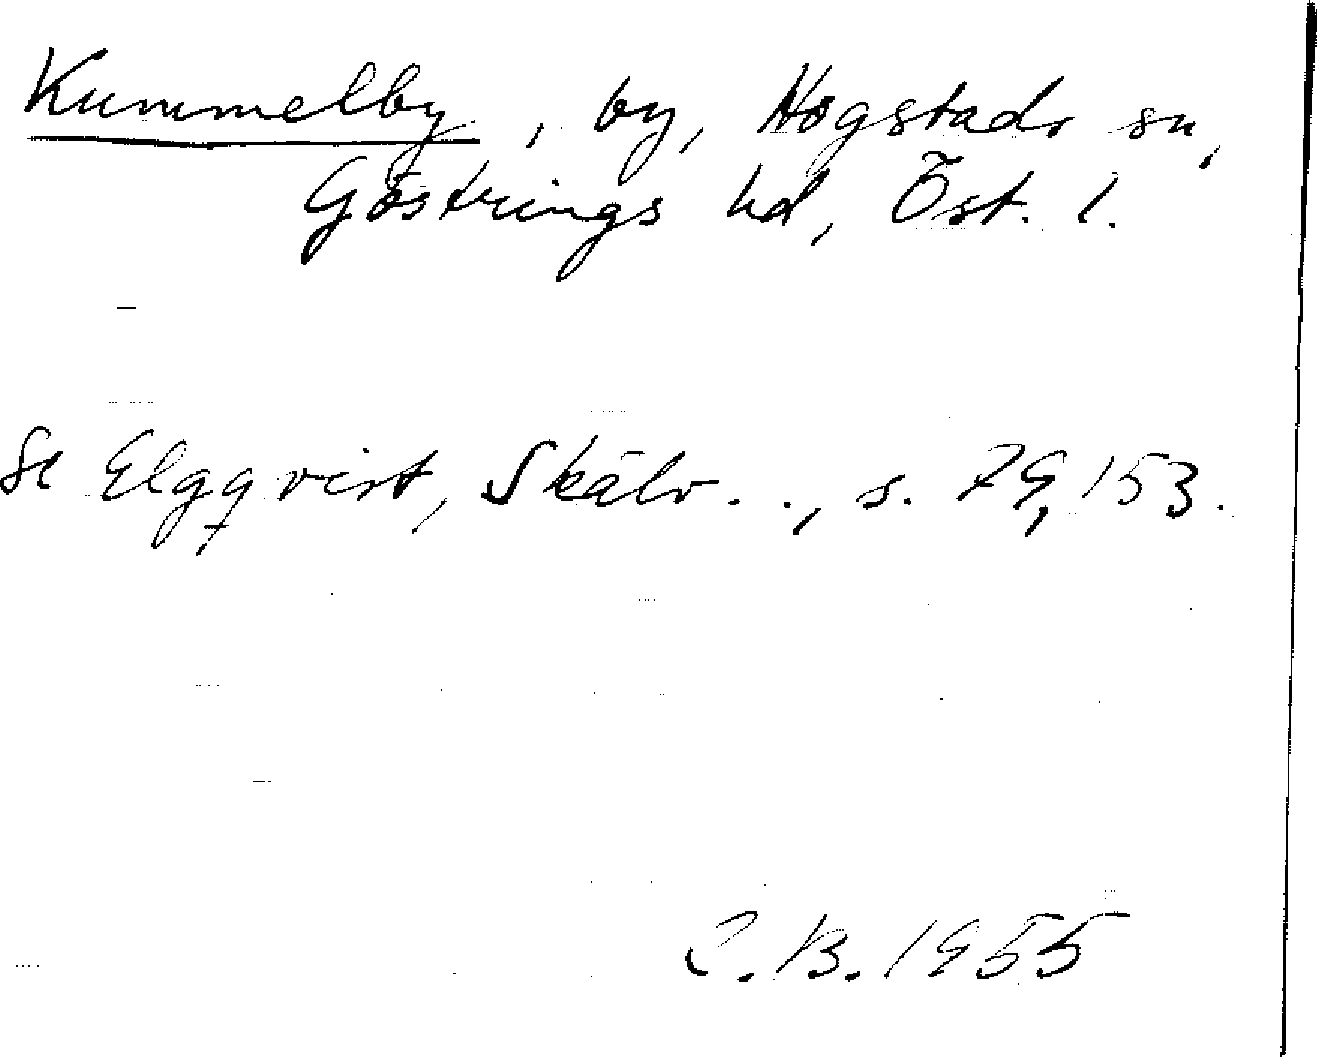 Kummelby, by, Hogstads sn,
Göstrings hd, Öst. l.
Se Elgqvist, Skälv . ., s. 79, 153.
C. B. 1955